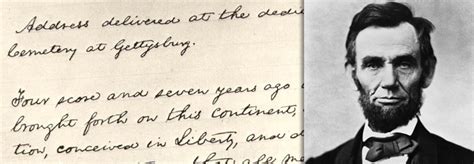 Address delivered at the dedi
Cemetery at Gettysburg.
Four score and seven years ago
brought forth on this continent,
tion, conceived in Liberty, and d
that all me